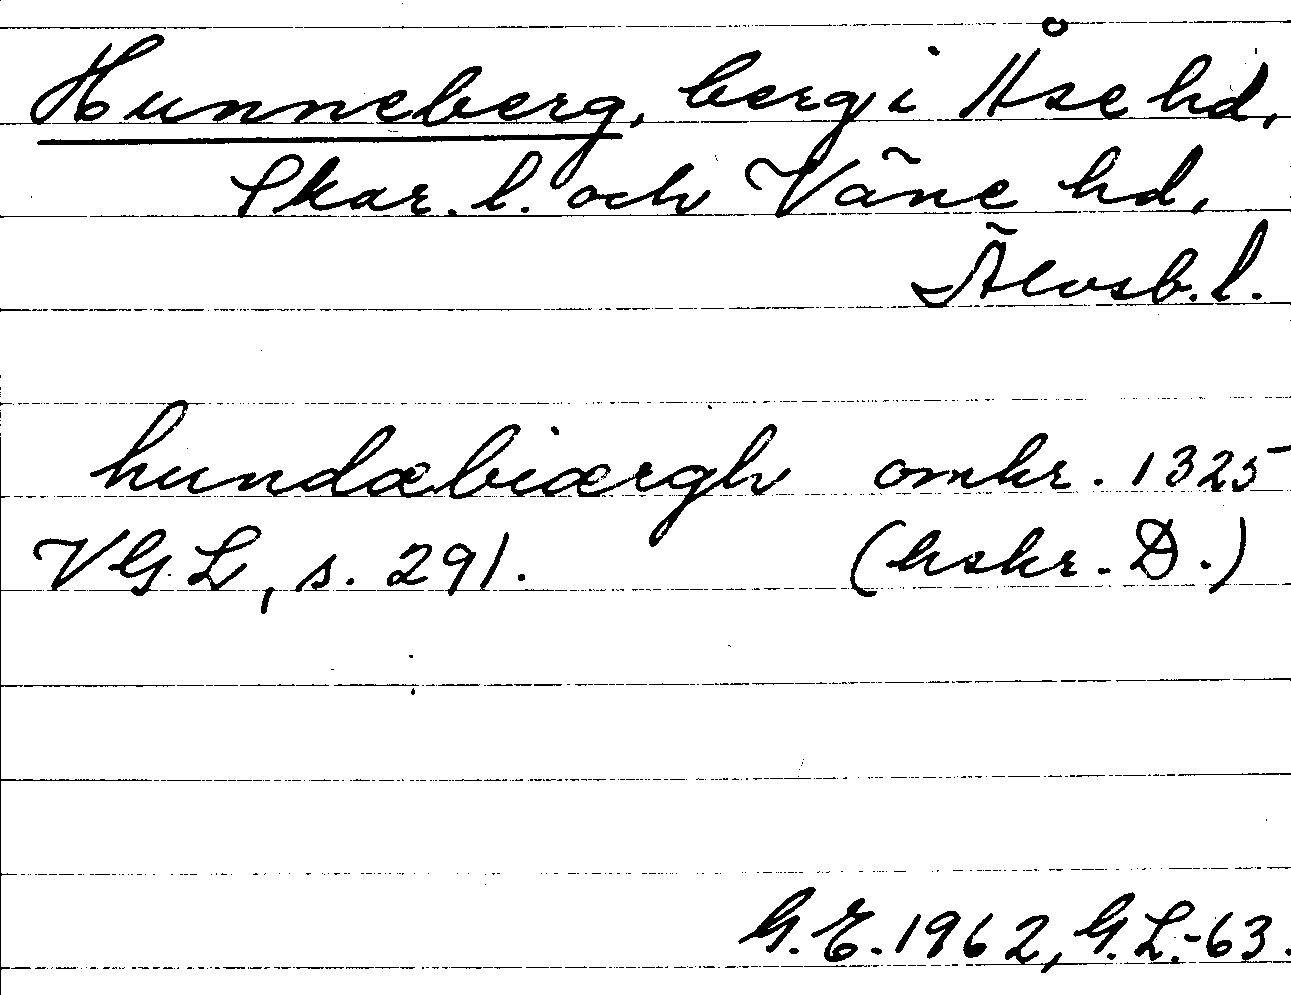 Hunneberg, berg i Åse hd,
Skar. l. och Väne hd,
Älvsb. l.
hundæbiærgh omkr. 1325
VGL, s. 291. (hskr. D.)
G.E. 1962, G.L.-63.